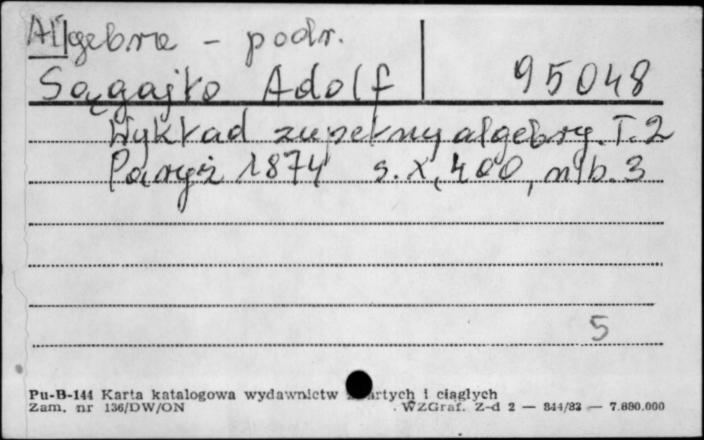 Algebra - podr.
Sągajło Adolf 95048
Wykład zupełny algebry. T. 2
Paryż 1874 s. X, 400, nlb. 3
5
Pu-B-144 Karta katalogowa wydawnictw artych i ciągłych
Zam. nr 136/DW/ON WZGraf. Z-d 2 — 844/83 — 7.880.000